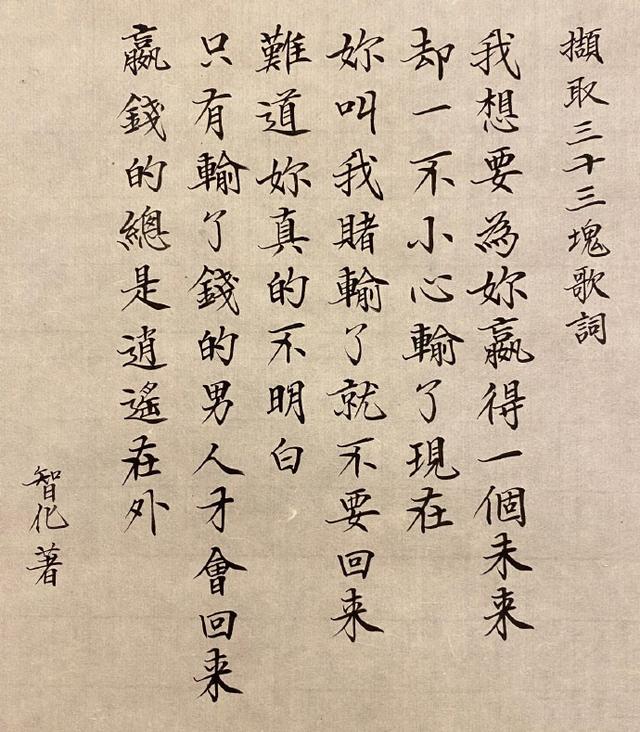 擷取三十三塊歌詞
我想要為妳贏得一個未来
却一不小心輸了現在
妳叫我賭輸了就不要回来
難道妳真的不明白
只有輸了錢的男人才會回来
贏錢的總是逍遙在外
智化著